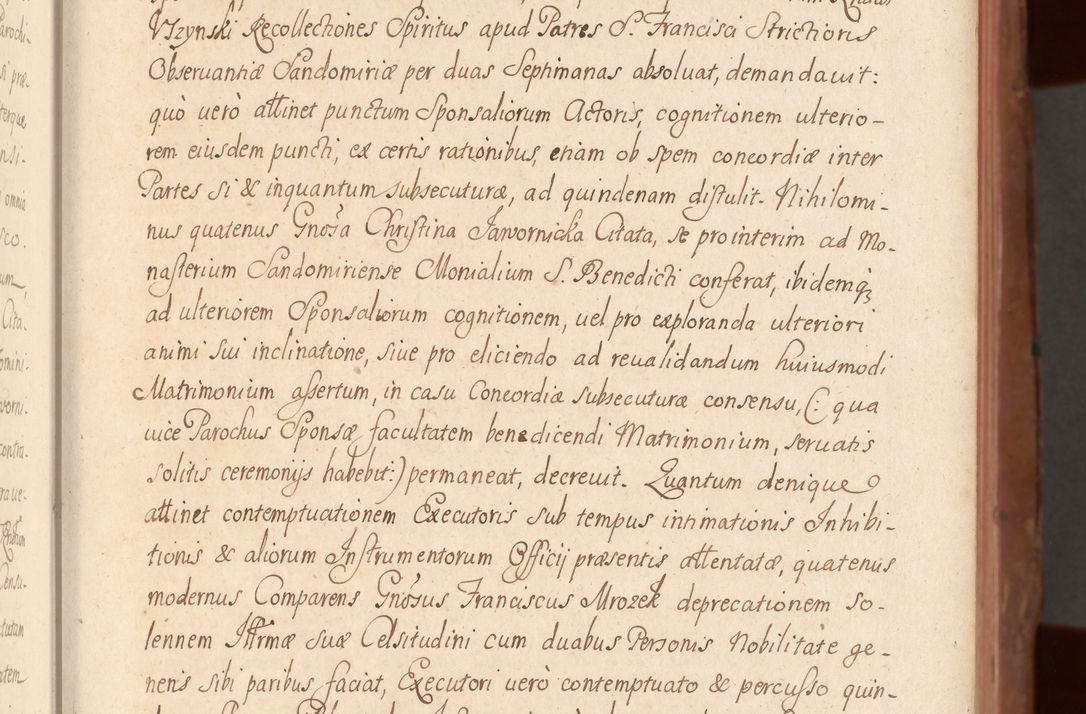 Uszynski Recollectiones Spiritus apud Patres S. Francisci Strictioris
Observantiæ Sandomiriæ per duas Septimanas absoluat, demandauit:
quò uerò attinet punctum Sponsaliorum Actoris, cognitionem ulterio-
rem eiusdem puncti, ex certis rationibus, etiam ob spem concordiæ inter
Partes si & inquantum subsecuturæ, ad quindenam distulit. Nihilomi-
nus quatenus Gnosa Christina Jawornicka Citata, se prointerim ad Mo-
nasterium Sandomiriense Monialium S. Benedicti conferat, ibidemq3
ad ulteriorem Sponsaliorum cognitionem, uel pro exploranda ulteriori
animi sui inclinatione, siue pro eliciendo ad reualidandum huiusmodi
Matrimonium assertum, in casu Concordiæ subsecuturæ consensu, (: qua
uice Parochus Sponsæ facultatem benedicendi Matrimonium, seruatis
solitis ceremonijs habebit:) permaneat, decreuit. Quantum denique
attinet contemptuationem Executoris sub tempus intimationis Inhibi-
tionis & aliorum Instrumentorum Officij præsentis attentatæ, quatenus
modernus Comparens Gnosus Franciscus Mrozek deprecationem so-
lennem Illrmæ suæ Celsitudini cum duabus Personis Nobilitate ge-
neris sibi paribus faciat, Executori uerò contemptuato & percusso quin-